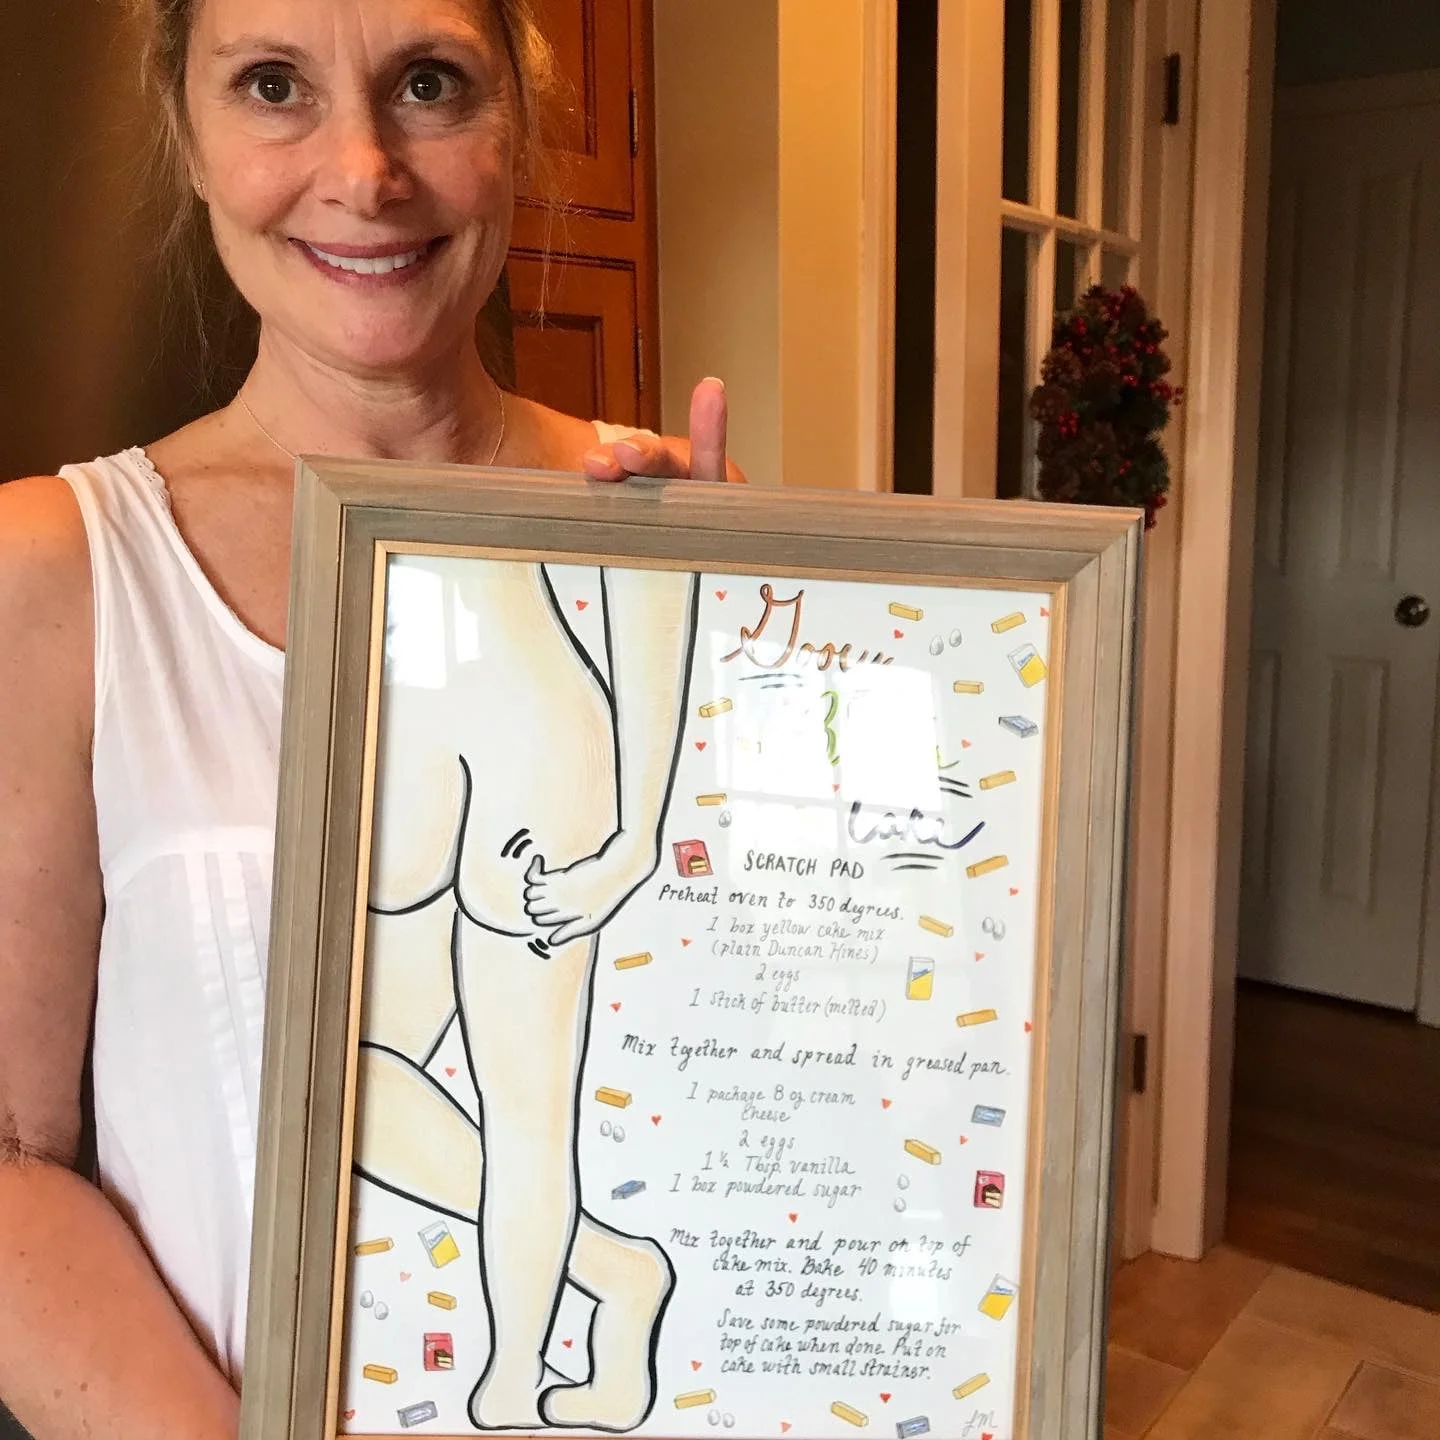 Gooey
Cake
SCRATCH PAD
Preheat oven to 350 degrees.
1 box yellow cake mix
(plain Duncan Hines)
2 eggs
1 stick of butter (melted)
Mix together and spread in greased pan.
1 package 8 oz cream
cheese
2 eggs
1 ½ Tbsp. vanilla
1 box powdered sugar
Mix together and pour on top of
cake mix. Bake 40 minutes
at 350 degrees.
Save some powdered sugar for
top of cake when done. Put on
cake with small strainer.
JM